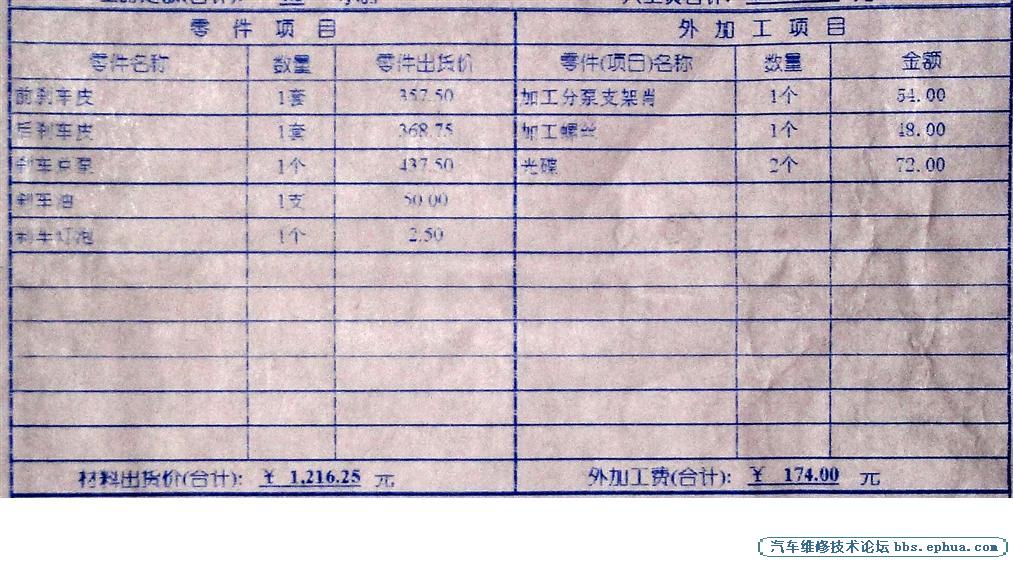 零件项目 外加工项目
零件名称 数量 零件出货价 零件(项目)名称 数量 金额
前刹车皮 1套 357.50 加工分泵支架肖 1个 54.00
后刹车皮 1套 368.75 加工螺丝 1个 48.00
刹车总泵 1个 437.50 光碟 2个 72.00
刹车油 1支 50.00
刹车灯泡 1个 2.50
材料出货价(合计): ¥ 1,216.25 元 外加工费(合计): ¥ 174.00 元
汽车维修技术论坛 bbs.ephua.com